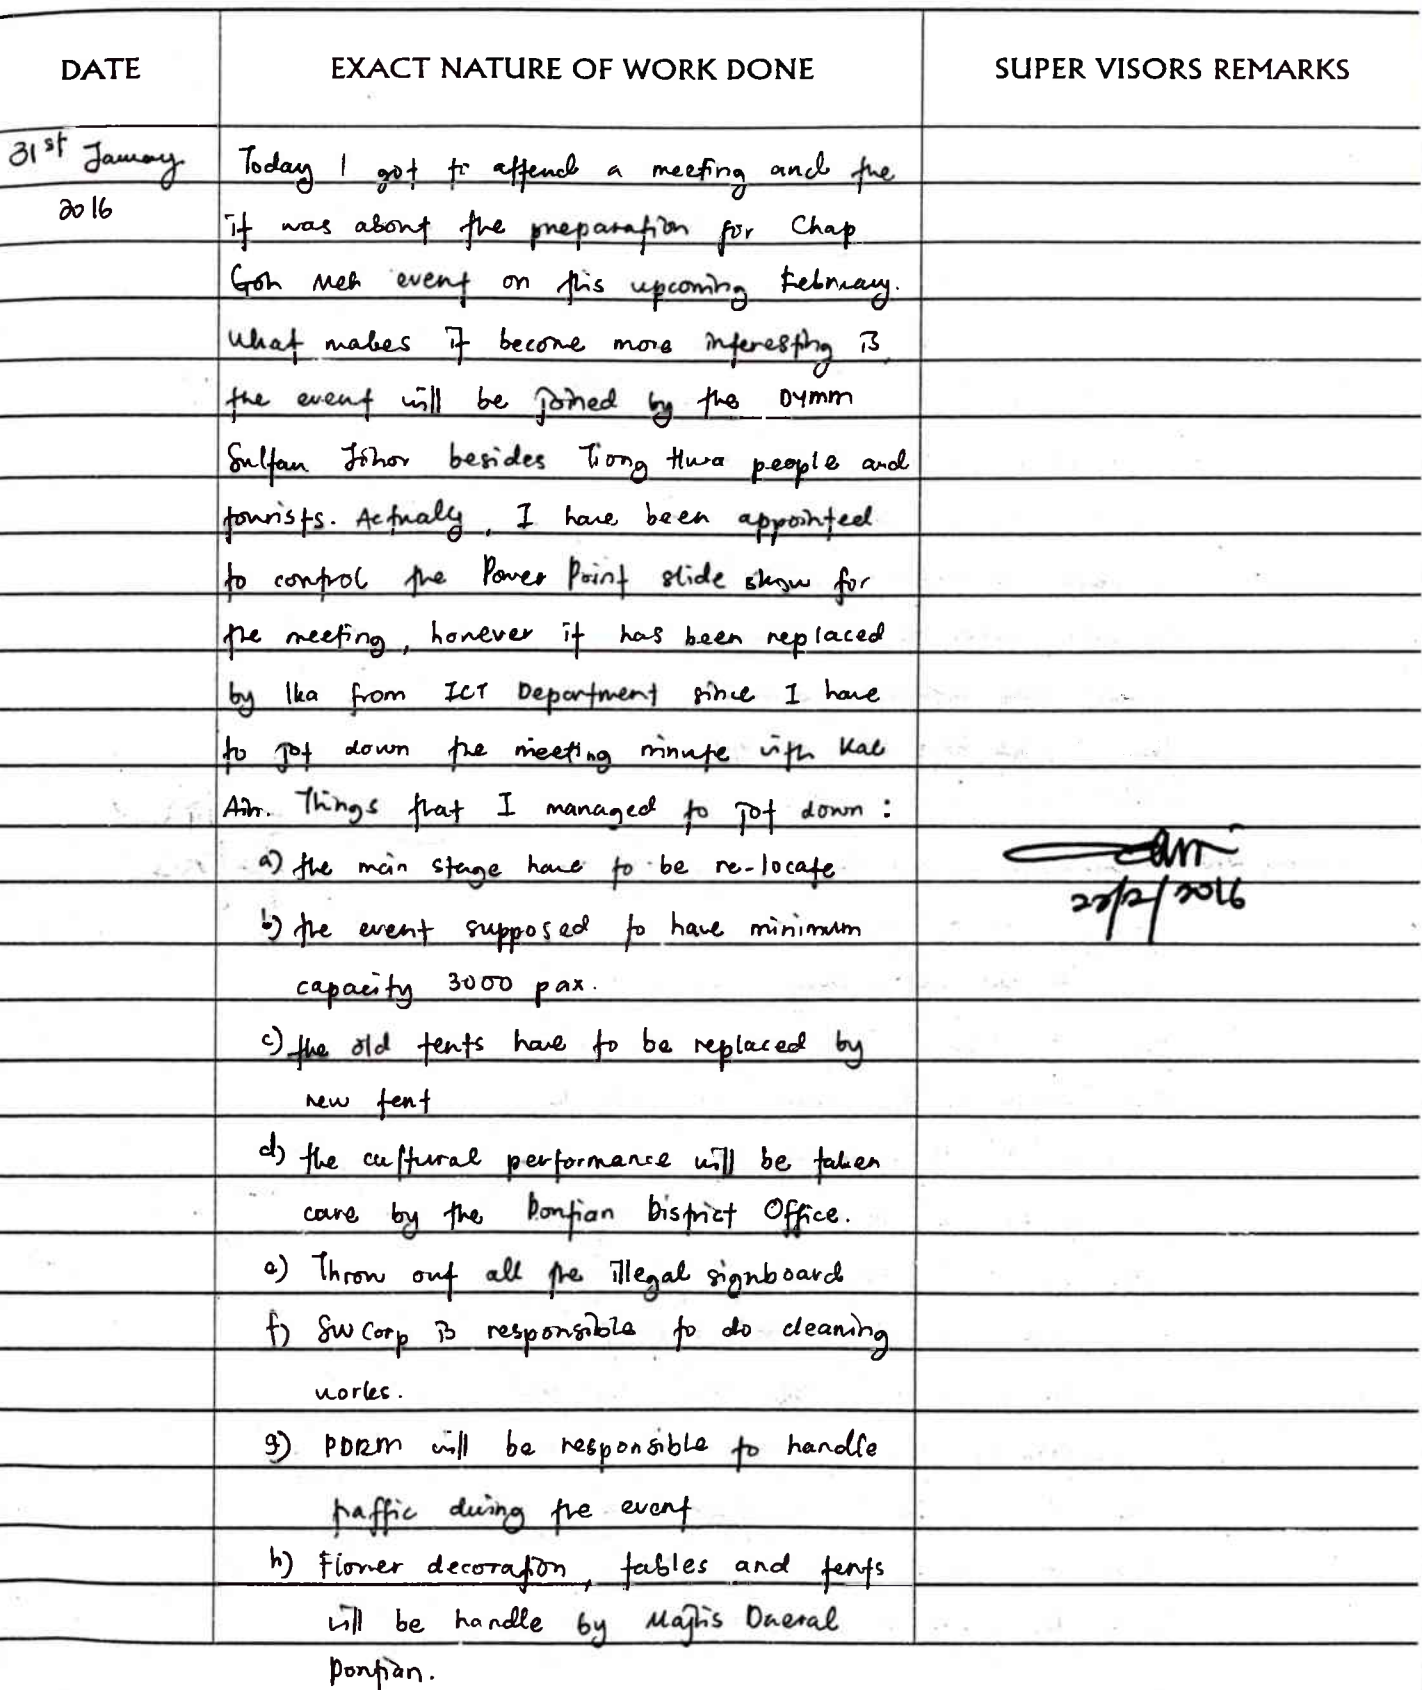 DATE EXACT NATURE OF WORK DONE SUPER VISORS REMARKS
31st January Today I got to attend a meeting and the
2016 it was about the preparation for Chap
Goh Meh event on this upcoming February.
What makes it become more interesting is
the event will be joined by the DYMM
Sultan Johor besides Tiong Hwa people and
tourists. Actually, I have been appointed
to control the Power Point slide show for
the meeting, however it has been replaced
by Ika from ICT Department since I have
to jot down the meeting minute with Kak
Ain. Things that I managed to jot down :
a) the main stage have to be re-locate
22/2/2016
b) the event supposed to have minimum
capacity 3000 pax.
c) the old tents have to be replaced by
new tent
d) the cultural performance will be taken
care by the Pontian District Office.
e) Throw out all the illegal signboard
f) SW Corp is responsible to do cleaning
works.
g) PDRM will be responsible to handle
traffic during the event
h) Flower decoration, tables and tents
will be handle by Majlis Daerah
Pontian.